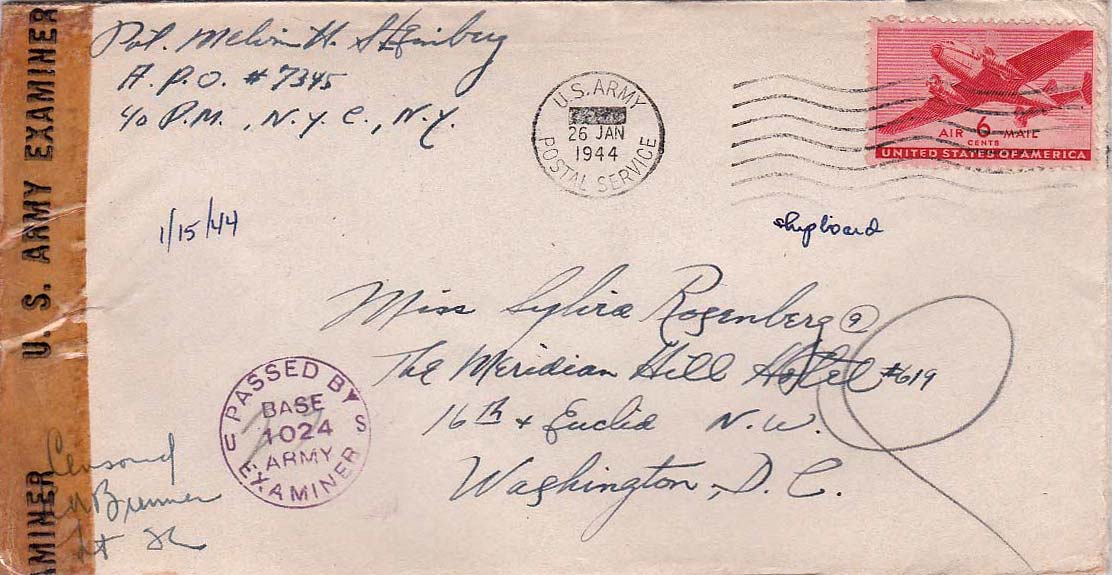 U. S. ARMY EXAMINER
AMINER
Pvt. Melvin H. Steinberg
A.P.O. #7345
c/o P.M., N.Y.C., N.Y.
U.S. ARMY
26 JAN
1944
POSTAL SERVICE
AIR 6 MAIL
CENTS
UNITED STATES OF AMERICA
1/15/44
shipboard
Miss Sylvia Rosenberg (9)
The Meridian Hill Hotel #619
16th + Euclid N.W.
Washington, D.C.
PASSED BY
BASE
1024
ARMY
EXAMINER
U S
Censored
Brenner
Lt